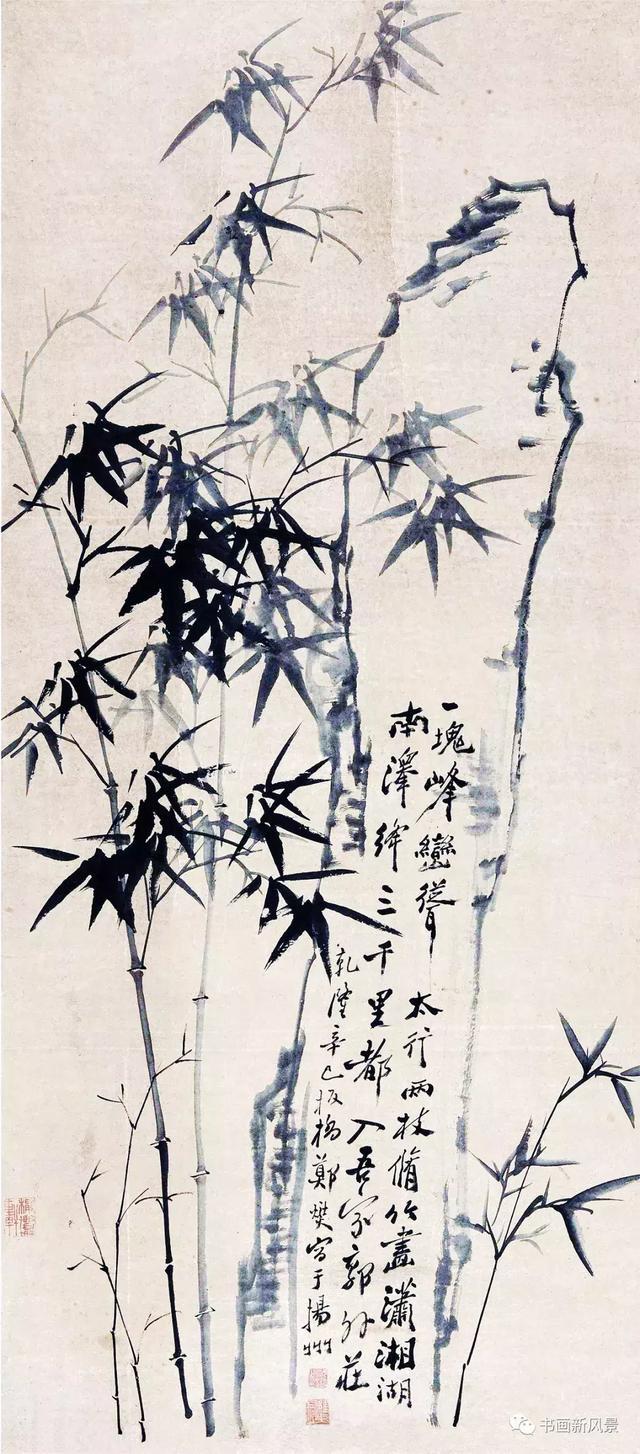 一塊峰巒聳太行兩枝脩竹畫瀟湘湖
南澤絳三千里都入吾家郭外莊
乾隆辛巳板橋鄭燮寫于揚州
书画新风景